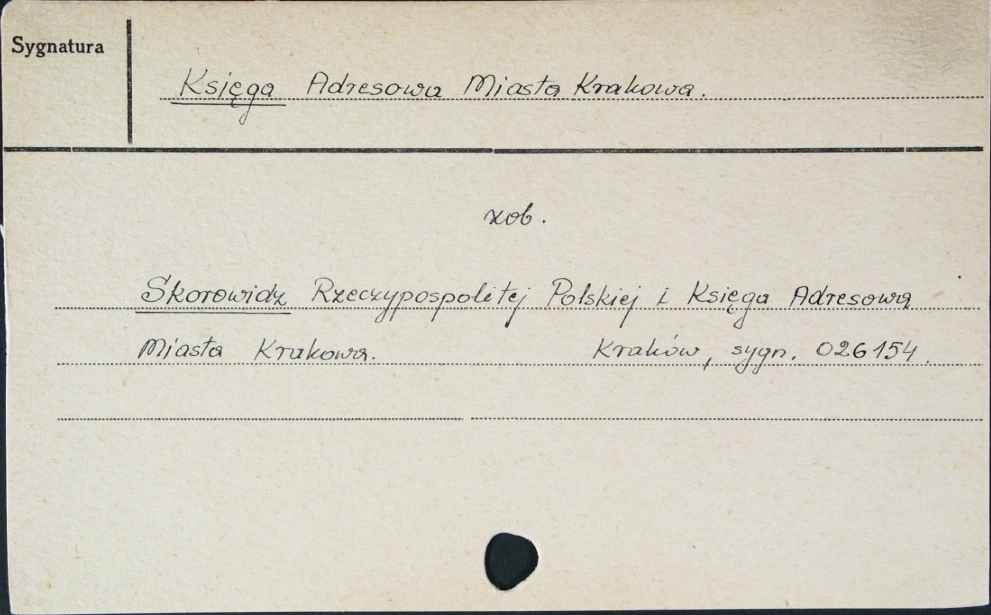 Sygnatura
Księga Adresowa Miasta Krakowa.
zob.
Skorowidz Rzeczypospolitej Polskiej i Księga Adresowa
Miasta Krakowa. Kraków, sygn. 026154.